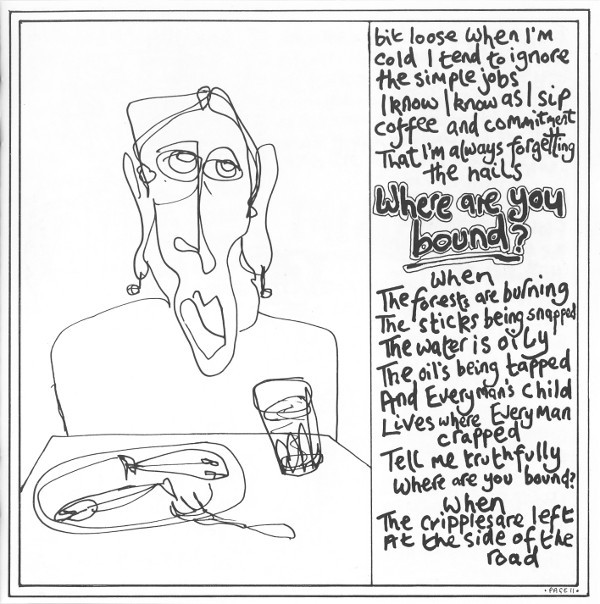 bit loose when I'm
cold I tend to ignore
the simple jobs
I know I know as I sip
coffee and commitment
That I'm always forgetting
the nails
Where are you
bound?
When
The forests are burning
The sticks being snapped
The water is oily
The oil's being tapped
And Every man's child
Lives where Every Man
crapped
Tell me truthfully
Where are you bound?
When
The cripples are left
At the side of the
road
• PAGE 11 •